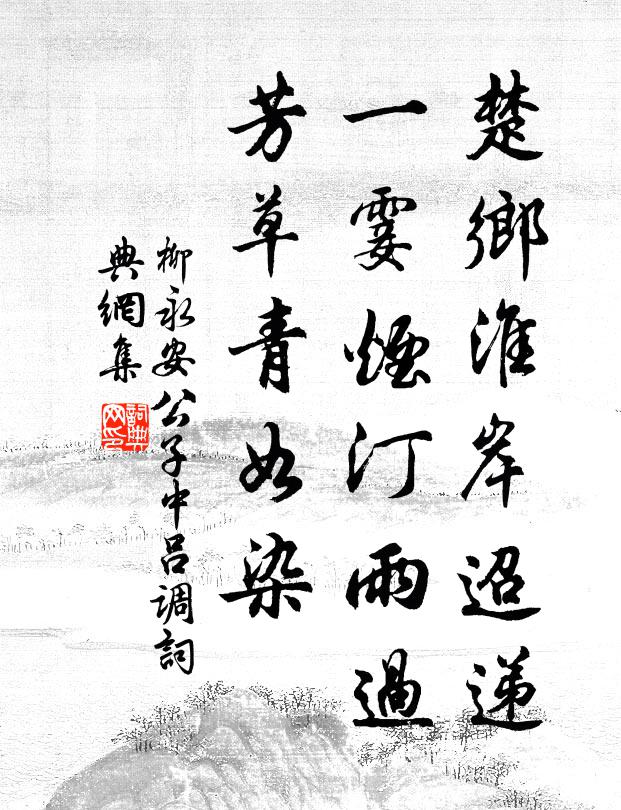 楚鄉淮岸迢递
一霎煙汀雨過
芳草青如染
柳永安公子中呂调詞
典網集
詞典网印